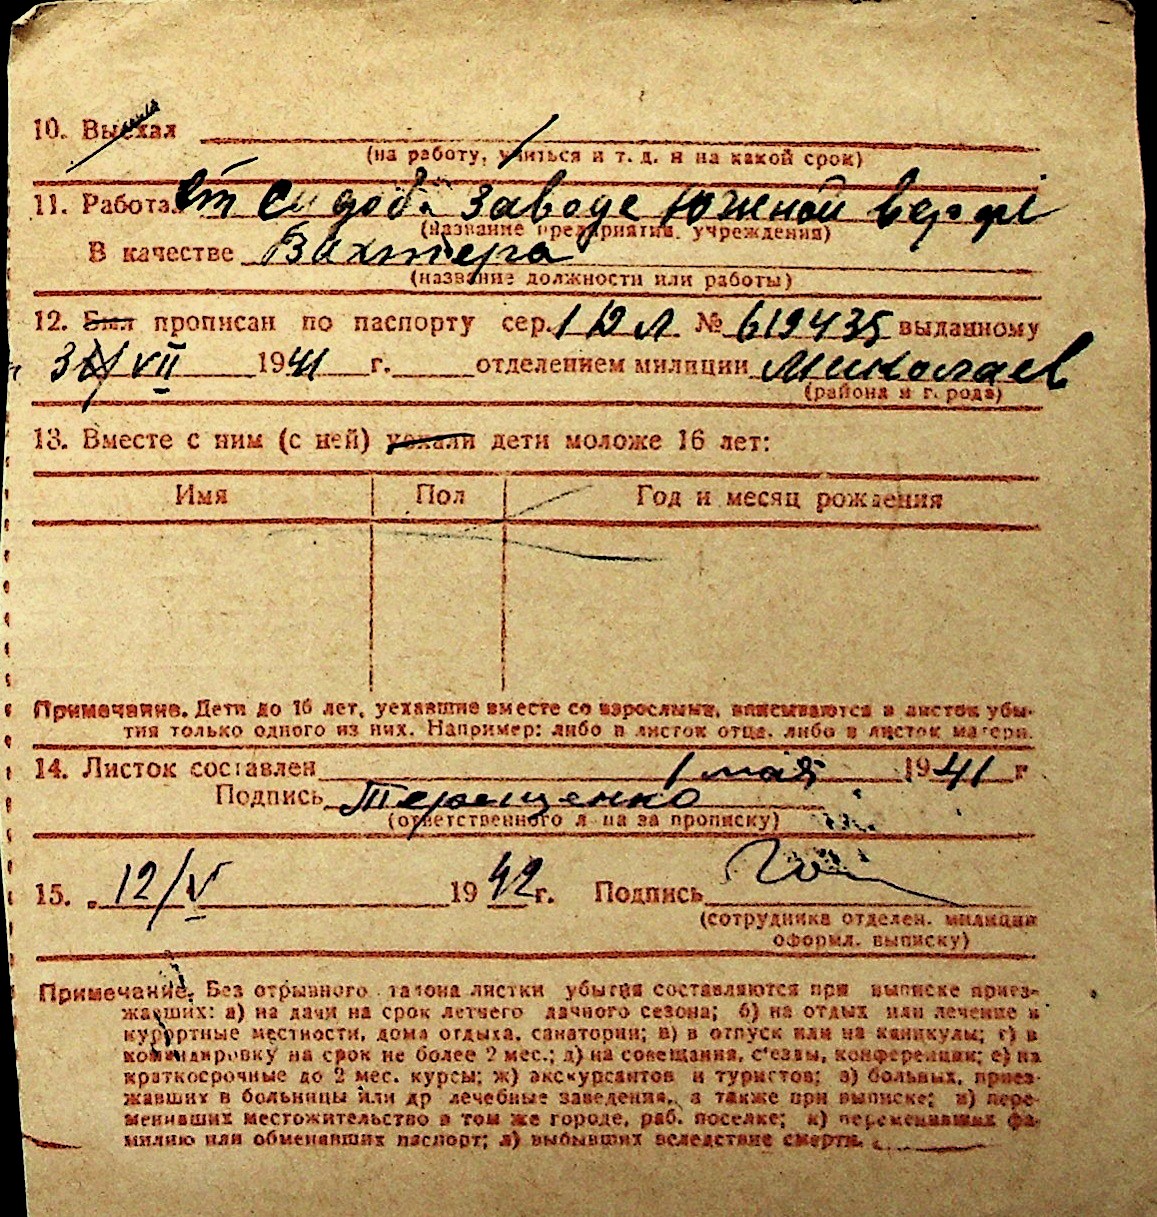 10. Выехал
(на работу, учиться и т. д. и на какой срок)
11. Работает Судоб. заводе Южной верфі
(название предприятия, учреждения)
В качестве Вахтера
(название должности или работы)
12. Был прописан по паспорту сер. № 619435 выданному
VII 1941 г. отделением милиции Миколаев
(района и города)
13. Вместе с ним (с ней) уехали дети моложе 16 лет:
Имя Пол Год и месяц рождения
Примечание. Дети до 16 лет, уехавшие вместе со взрослыми, вписываются в листок убы-
тия только одного из них. Например: либо в листок отца, либо в листок матери.
14. Листок составлен 1 мая 1941 г
Подпись Терещенко
(ответственного лица за прописку)
15. 12/V 1942 г. Подпись
(сотрудника отделен. милиции
оформл. выписку)
Примечание. Без отрывного талона листки убытия составляются при выписке приез-
жавших: а) на дачи на срок летнего дачного сезона; б) на отдых или лечение в
курортные местности, дома отдыха, санатории; в) в отпуск или на каникулы; г) в
командировку на срок не более 2 мес.; д) на совещания, с'езды, конференции; е) на
краткосрочные до 2 мес. курсы; ж) экскурсантов и туристов; з) больных, приез-
жавших в больницы или др лечебные заведения, а также при выписке; и) пере-
менивших местожительство в том же городе, раб. поселке; к) переменивших фа-
милию или обменявших паспорт; л) выбывших вследствие смерти.